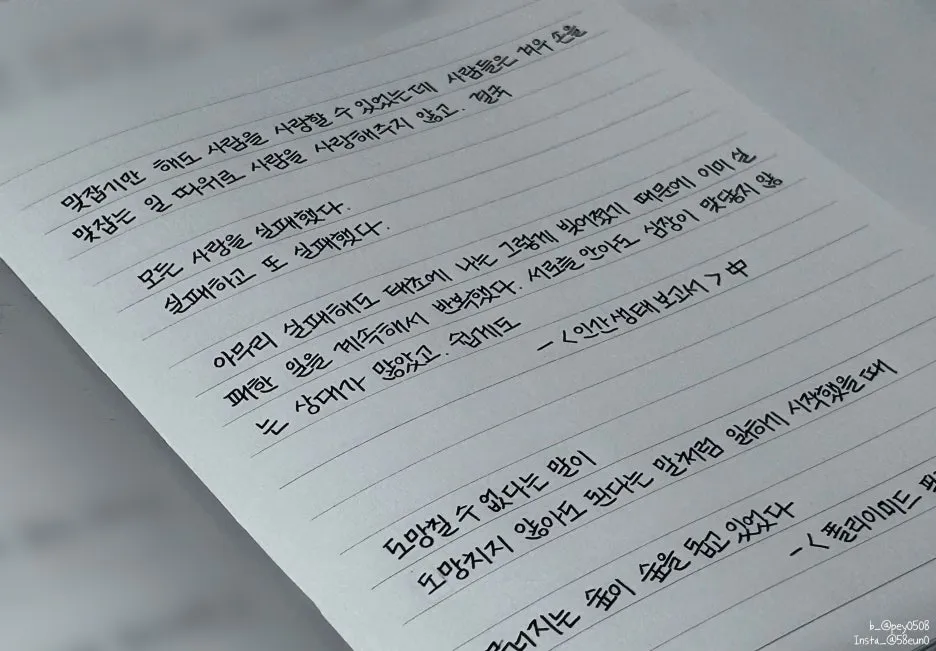 맞잡기만 해도 사람을 사랑할 수 있었는데 사람들은 겨우 손을
맞잡는 일 따위로 사람을 사랑해주지 않고. 결국
모든 사랑을 실패했다.
실패하고 또 실패했다.
아무리 실패해도 태초에 나는 그렇게 빚어졌기 때문에 이미 실
패한 일을 계속해서 반복했다. 서로를 안아도 심장이 맞닿지 않
는 상대가 많았고. 쉽게도
-<인간 생태 보고서> 中
도망칠 수 없다는 말이
도망치지 않아도 된다는 말처럼 읽히기 시작했을 때
지는 숲이 숲을 덮고 있었다
-<폴라이미드
b_@pey0508
Insta_@58eun0